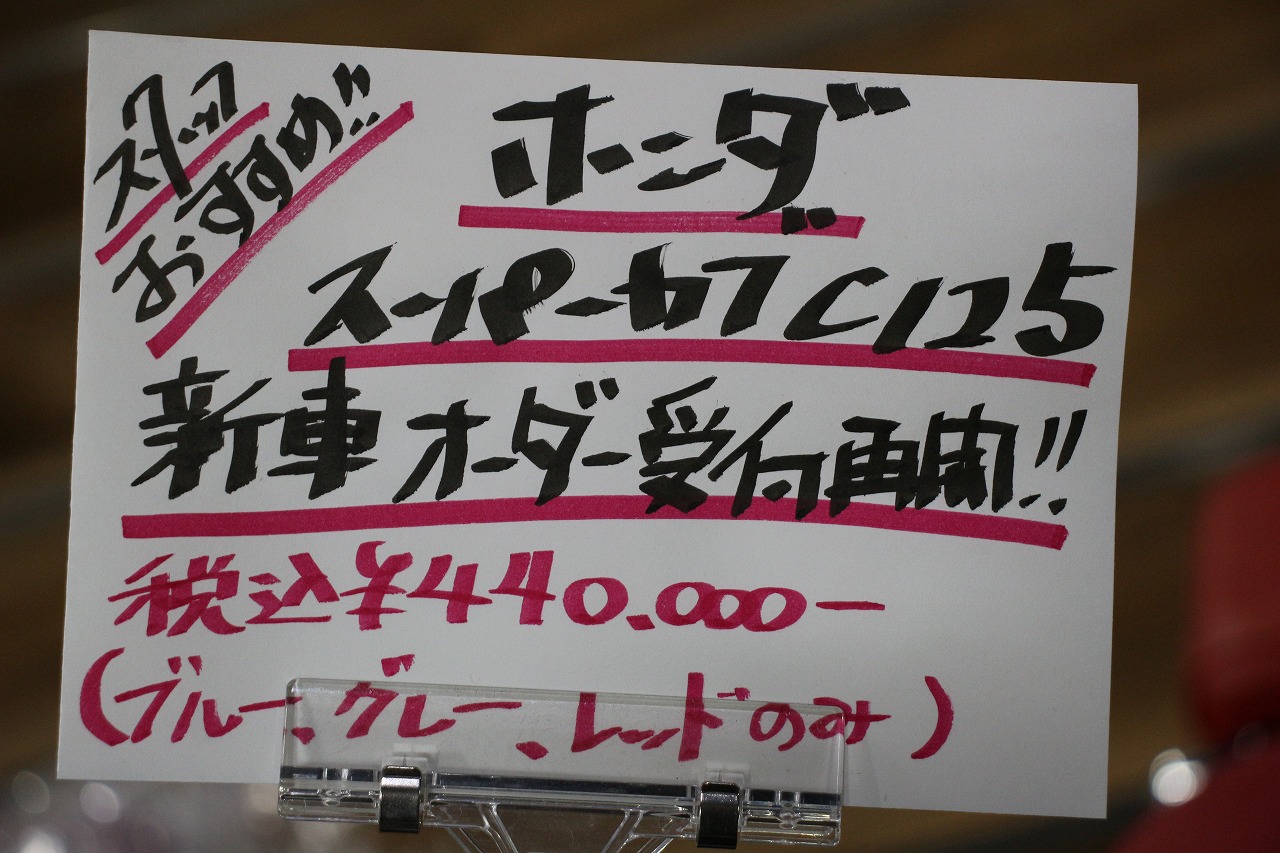 スタッフ
おすすめ!!
ホンダ
スーパーカブC125
新車オーダー受付再開!!
税込¥440.000ー
(ブルー、グレー、レッドのみ)